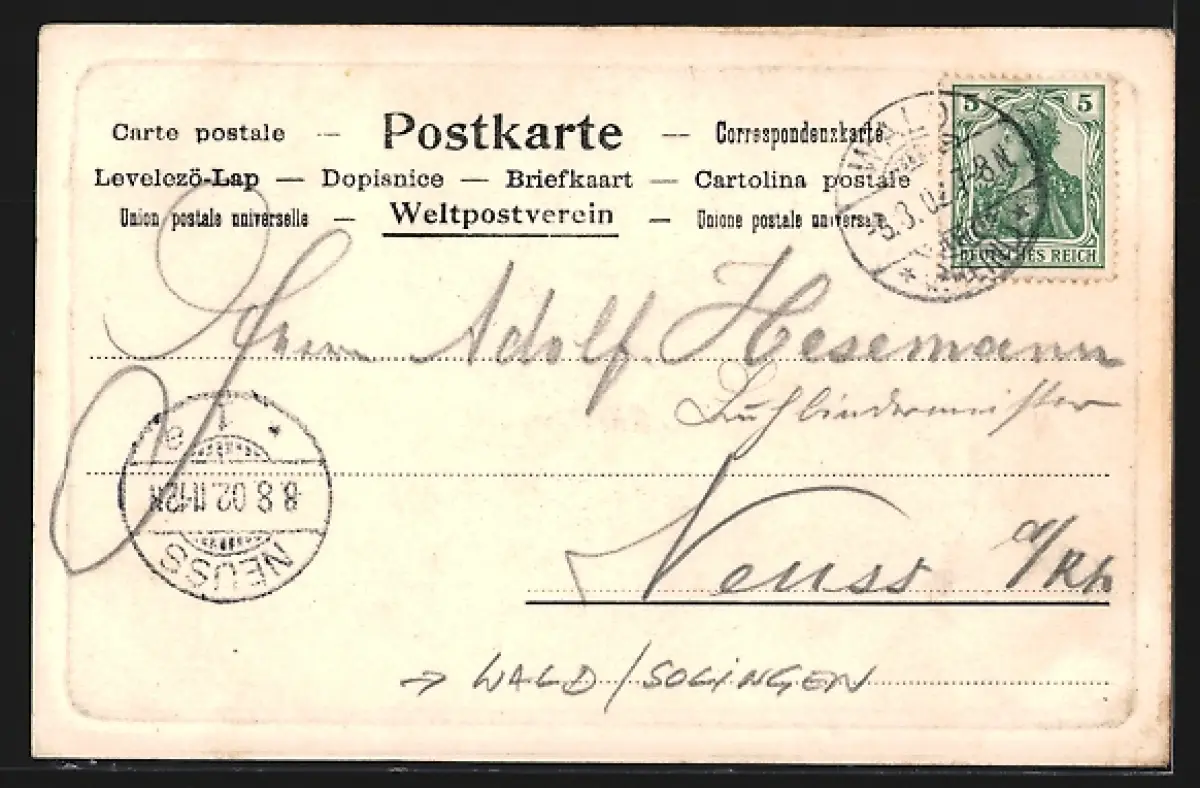 Carte postale — Postkarte — Correspondenzkarte
Levelezö-Lap — Dopisnice — Briefkaart — Cartolina postale
Union postale universelle — Weltpostverein — Unione postale universale
5 5
DEUTSCHES REICH
WALD
8.3.02 7-8N.
Herrn Adolf Hesemann
1
8.3.02.11-12N
NEUSS
Neuss a/Rh
→ WALD / SOLINGEN